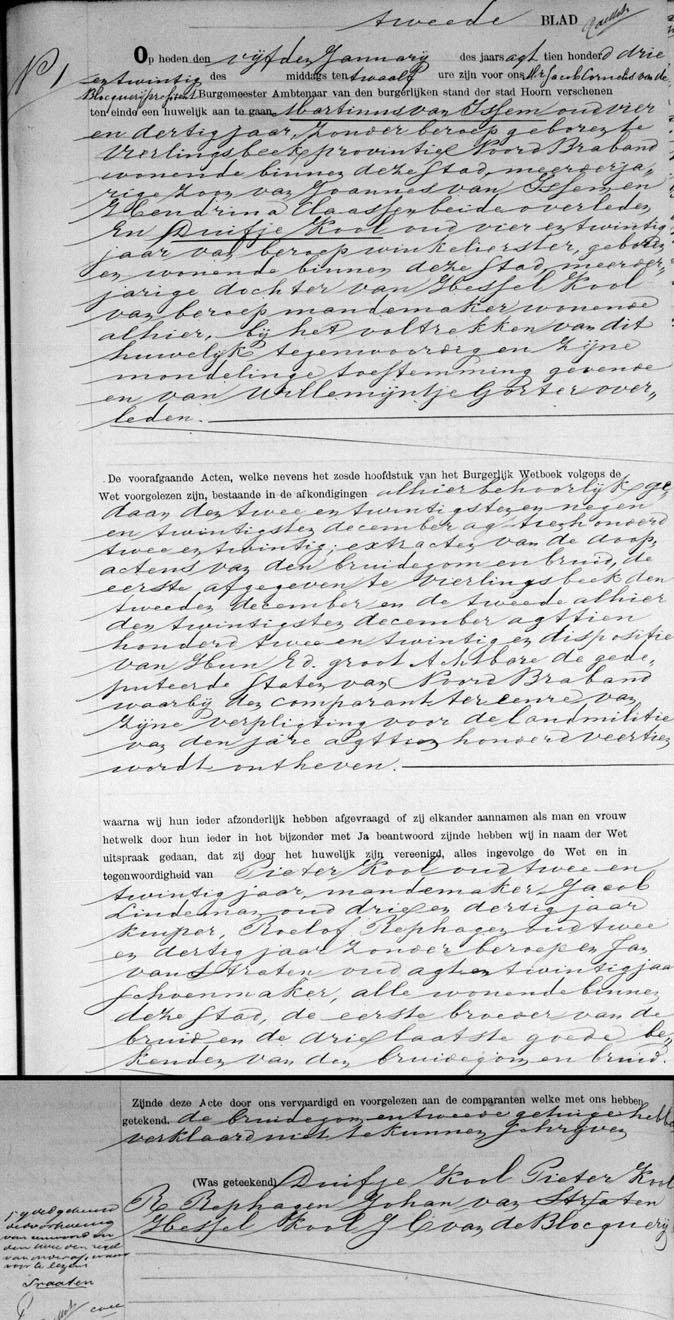 tweede BLAD
No 1
Op heden den vijfden January des jaars agt tien honderd drie
en twintig des middags ten twaalf ure zijn voor ons Mr Jacob Cornelis van de
Blocquerij president Burgemeester Ambtenaar van den burgerlijken stand der stad Hoorn verschenen
ten einde een huwelijk aan te gaan Martinus van Issem oud vier
en dertig jaar, zonder beroep geboren te
Vierlingsbeek provintie Noord Braband
wonende binnen deze stad, meerderja„
rige zoon van Joannes van Issem en
Hendrina Claassen beide overleden
En Duifje Kool oud vier en twintig
jaar van beroep winkelierster, geboren
en wonende binnen deze stad, meerder„
jarige dochter van Hessel Kool
van beroep mandemaker wonende
alhier, bij het voltrekken van dit
huwelijk tegenwoordig en zijne
mondelinge toestemming gevende
en van Willemijntje Gorter over„
leden.
De voorafgaande Acten, welke nevens het zesde hoofdstuk van het Burgerlijk Wetboek volgens de
Wet voorgelezen zijn, bestaande in de afkondigingen alhier behoorlijk ge„
daan den twee en twintigsten en negen
en twintigsten december agttienhonderd
twee en twintig; extracten van de doop„
actens van den bruidegom en bruid, de
eerste, afgegeven te Vierlingsbeek den
tweeden december en de tweede alhier
den twintigsten december agttien
honderd twee en twintig en dispositie
van Hun Ed. groot Achtbare de gede„
puteerde Staten van Noord Braband
waarbij den comparant ter eenre van
zijne verpligting voor de landmilitie
van den jare agttien honderd veertien
wordt ontheven.
waarna wij hun ieder afzonderlijk hebben afgevraagd of zij elkander aannamen als man en vrouw
hetwelk door hun ieder in het bijzonder met Ja beantwoord zijnde hebben wij in naam der Wet
uitspraak gedaan, dat zij door het huwelijk zijn vereenigd, alles ingevolge de Wet en in
tegenwoordigheid van Pieter Kool oud twee en
twintig jaar, mandemaker, Jacob
Lindeman oud drie en dertig jaar
kuiper, Roelof Rephagen oud twee
en dertig jaar zonder beroep en Jan
van Straten oud agt en twintig jaar
schoenmaker, alle wonende binnen
deze stad, de eerste broeder van de
bruid en de drie laatste goede be„
kenden van den bruidegom en bruid.
Zijnde deze Acte door ons vervaardigd en voorgelezen aan de comparanten welke met ons hebben
getekend. de bruidegom en tweede getuige hebben
verklaard niet te kunnen schrijven
(Was geteekend) Duifje Kool Pieter Kool
R Rephagen Johan van Straten
Hessel Kool J C van de Blocquerij
Straaten